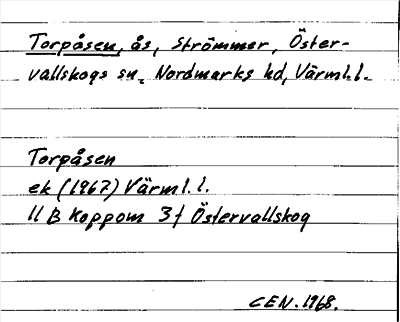 Torpåsen, ås, Strömmer, Öster-
vallskogs sn, Nordmarks hd, Värml. l.
Torpåsen
ek (1967) Värml. l.
11 B Koppom 3 f Östervallskog
CEN. 1968.